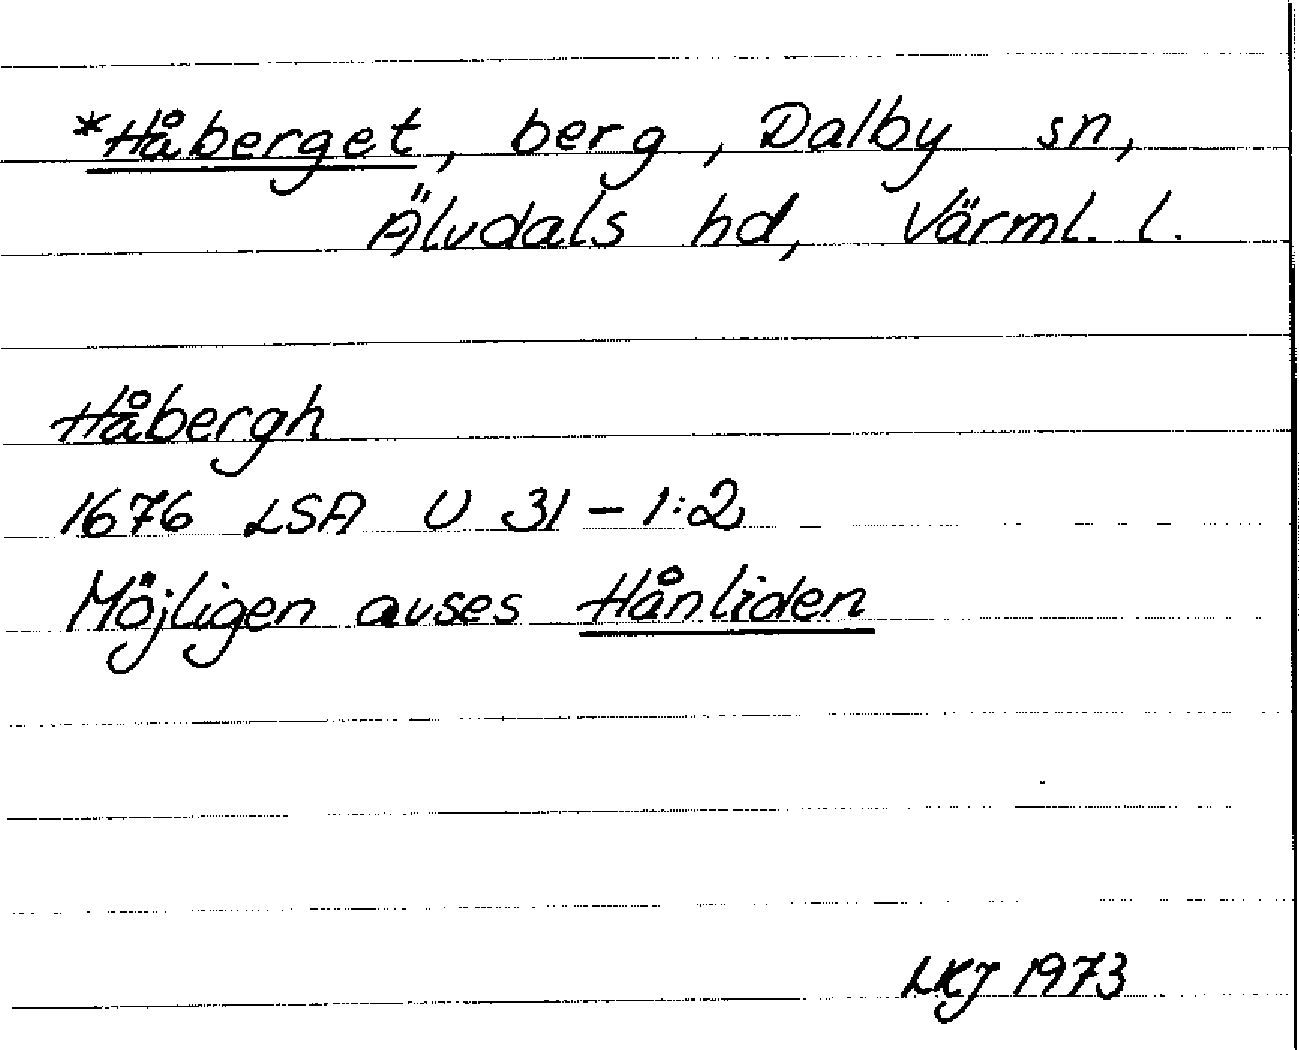 *Håberget, berg, Dalby sn,
Älvdals hd, Värml. l.
Håbergh
1676 LSA U 31 - 1:2
Möjligen avses Hånliden
LKJ 1973